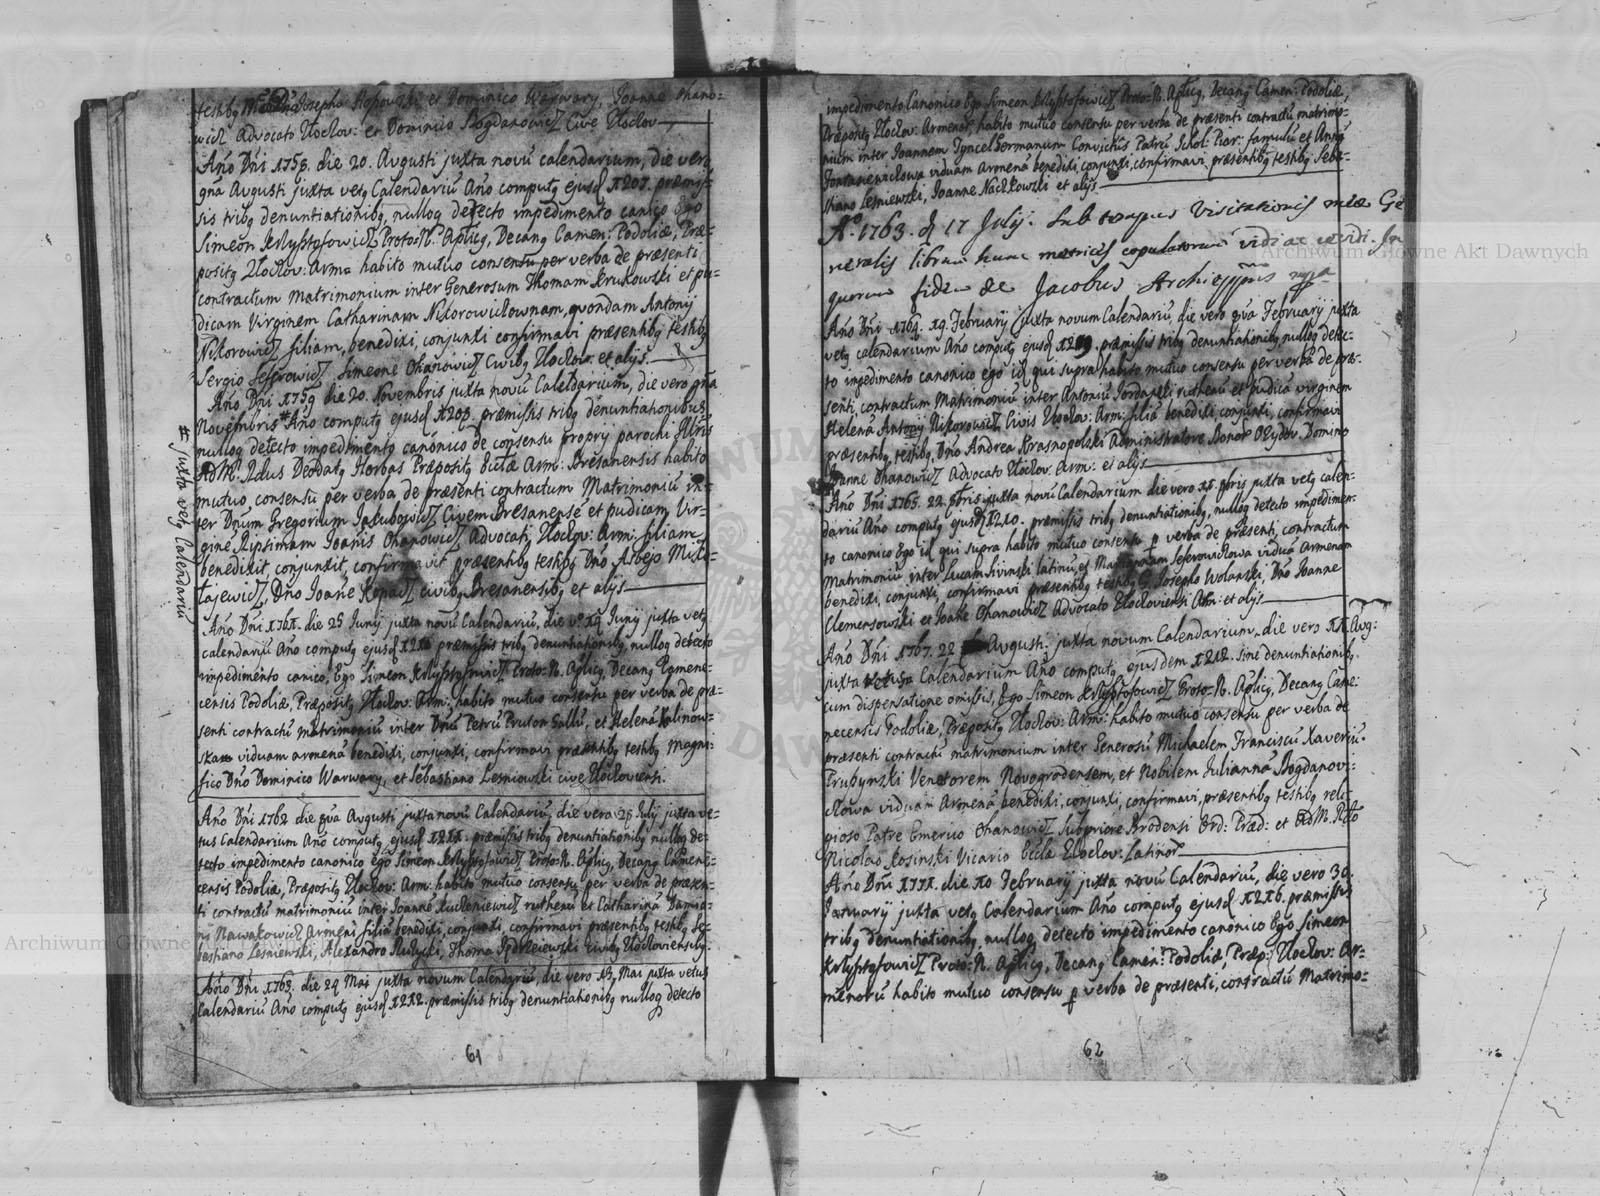 Josepho et Dominico Warwary, Joanne Ohano=
wicz Advocato Złoczov: et Dominico Bogdanowicz Cive Złoczov
Año Dñi 1758. die 20. Avgusti juxta novũ calendarium, die vero
Avgusti juxta vetꝫ Calendariũ Año computꝫ ejusđ 1207. præmis=
sis tribꝫ denuntiationibꝫ, nulloq detecto impedimento canico Ego
Simeon Krzysztofowicz Proto=N. Aplicꝫ, Decanꝫ Camen: Podoliæ, Præ=
positꝫ Złoczov: Arm= habito mutuo consensu per verba de præsenti
contractum Matrimonium inter Generosum Thomam Krukowski et pu=
dicam Virginem Catharinam Nikorowiczownam, quondam Antonij
Nikorowicz filiam, benedixi, conjunxi confirmavi præsentibꝫ testibꝫ
Sergio Seferowicz, Simeone Ohanowicz Civibꝫ Złoczov: et alijs.
Año Dñi 1759 die 20. Novembris juxta novũ Calendarium, die vero
Novembris # Año computꝫ ejusđ 1208. præmissis tribꝫ denuntiationibus
nulloq detecto impedimento canónico de consensu proprij parochi
AdM. Rđus Deodatꝫ Præpositꝫ Eccłæ Arm: Bresanensis habito
mutuo consensu per verba de præsenti contractum Matrimoniũ in=
ter Dñum Gregorium Jakubowicz Civem Bresanensẽ et pudicam Vir=
ginẽ Ripsimam Joañis Ohanowicz Advocati Złoczov: Arm: filiam
benedixit, conjunxit, confirmavit præsentibꝫ testibꝫ Dño
Dño Joañe civibꝫ Bresanensibꝫ et alijs
# juxta vetꝫ Calendariũ
Año Dñi 1761. die 25 Junij juxta novũ Calendariũ, die vº 14 Junij juxta vetꝫ
calendariũ Año computꝫ ejusđ 1210 præmissis tribꝫ denuntiationibꝫ, nulloq detecto
impedimento canico, Ego Simeon Krzysztofowicz Proto=N. Aplicꝫ, Decanꝫ Camene=
censis Podoliæ, Præpositꝫ Złoczov: Arm: habito mutuo consensu per verba de præ=
senti contractũ matrimoniũ inter Dñũ Petrũ Gallũ, et Helenã Kalinow=
skam viduam armenã benedixi, conjunxi, confirmavi præsentibꝫ testibꝫ Magni=
fico Dño Dominico Warwary, et Sebastiano Lesniowski cive Złocżoviensi.
Año Dñi 1762 die Avgusti juxta novũ Calendariũ, die vero 28 Julij juxta ve=
tus Calendarium Año computꝫ ejusđ 1211. præmissis tribꝫ denuntiationibꝫ nulloq de=
tecto impedimento canonico ego Simeon Krzysztofowicz Proto=N. Aplicꝫ, Decanꝫ Camene=
censis Podoliæ, Præpositꝫ Złoczov: Arm: habito mutuo consensu per verba de præsen=
ti contractũ matrimoniũ inter Joannẽ ruthenũ et Catharinã Damia=
ni Nawakowicz Armeni filiã benedixi, conjunxi, confirmavi præsentibꝫ testibꝫ Se=
bastiano Lesniewski, Alexandro Thoma civibꝫ Złoczoviensibꝫ.
Año Dñi 1763. die 24 Maj juxta novum Calendariũ, die vero 13. Maj juxta vetus
Calendariũ Año computꝫ ejusđ 1212. præmissis tribꝫ denuntiationibꝫ nulloq detecto
61
impedimento Canonico Ego Simeon Krzysztofowicz Proto=N. Aplicꝫ, Decanꝫ Camen: Podoliæ,
Præpositꝫ Złoczov: Armenor, habito mutuo consensu per verba de præsenti contractũ matrimo=
nium inter Joannem Germanum Convictus Patrũ Schol: Piar: famulũ et Annã
viduam Armenã benedixi, conjunxi, confirmavi, præsentibꝫ testibꝫ Seba=
stiano Lesniewski, Joanne et alijs
Aº. 1763. đ 17 Julij. Sub tempus Visitationis meæ Ge
neralis librum hunc metrices copulatorum vidi ac In
quorum fidem Jacobus Archieppus mppa
Año Dñi 1764. 19. Februarij juxta novum Calendariũ, die vero Februarij juxta
vetꝫ calendarium Año computꝫ ejusđ præmissis tribꝫ denuntiationibꝫ nulloq detec=
to impedimento canonico ego iđ qui supra habito mutuo consensu per verba de præ=
senti, contractum Matrimoniũ inter Antoniũ Jordanski ruthenũ et pudicã virginem
Helenã Antony Nikorowicz Civis Złoczov: Arm: filiã benedixi conjunxi, confirmavi
præsentibꝫ testibꝫ, Dño Andrea Krasnopolski Administratore Bonor Domino
Joanne Ohanowicz Advocato Złoczov: Arm: et alijs
Año Dñi 1765. 22. 8bris juxta novũ Calendarium die vero 11. 8bris juxta vetꝫ calen=
dariũ Año computꝫ ejusđ 1210. præmissis tribꝫ denuntiationibꝫ, nulloq detecto impedimen=
to canonico Ego iđ qui supra habito mutuo consensu p verba de præsenti, contractum
Matrimoniũ inter Lucam latinũ, et Mariannam Seferowiczowa viduã Armenam
benedixi, conjunxi, confirmavi præsentibꝫ testibꝫ G. Josepho Wolanski, Dño Joanne
Clemensowski et Joañe Ohanowicz Advocato Złoczoviensi Arm: et alijs
Año Dñi 1767. 22 Avgusti: juxta novum Calendarium, die vero 11. Avg:
juxta vetus Calendarium Año computꝫ ejusdem 1212. sine denuntiationibꝫ,
cum dispensatione omissis, Ego Simeon Krzysztofowicz Proto=N. Aplicꝫ, Decanꝫ Came:
necensis Podoliæ, Præpositꝫ Złoczov: Arm: habito mutuo consensu per verba de
præsenti contractũ matrimonium inter Generosũ Michaelem Franciscũ Xaveriũ
Venatorem Novogrodensem, et Nobilem Juliannã Bogdanovi=
czowa viduam Armenã benedixi, conjunxi, confirmavi, præsentibꝫ testibꝫ reli=
gioso Patre Emerico Ohanowicz Subpriore Brodensi Ord: Præd: et AdM. Rđo
Nicolao Kosinski Vicario Eccłæ Złoczov: Latinor
Año Dñi 1771. die 10 Februarij juxta novũ Calendariũ, die vero 30.
Januarij juxta vetꝫ Calendarium Año computꝫ ejusđ 1216. præmissis
tribꝫ denuntiationibꝫ, nulloq detecto impedimento canónico Ego Simeon
Krzysztofowicz Proto=N. Aplicꝫ, Decanꝫ Camen: Podoliæ, Præp: Złoczov: Ar=
menorũ habito mutuo consensu p verba de præsenti, contractũ Matrimo=
62
Archiwum Główne Akt Dawnych